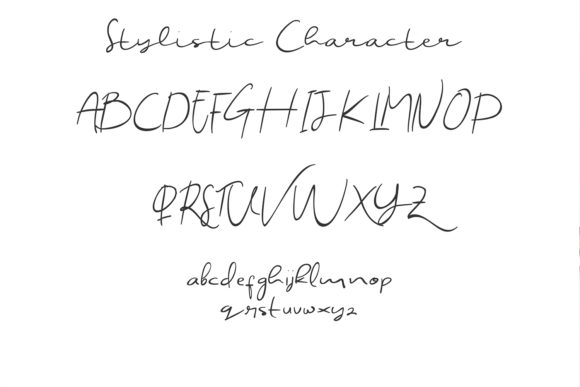 Stylistic Character
ABCDEFGHIJKLMNOP
QRSTUVWXYZ
abcdefghijklmnop
qrstuvwxyz